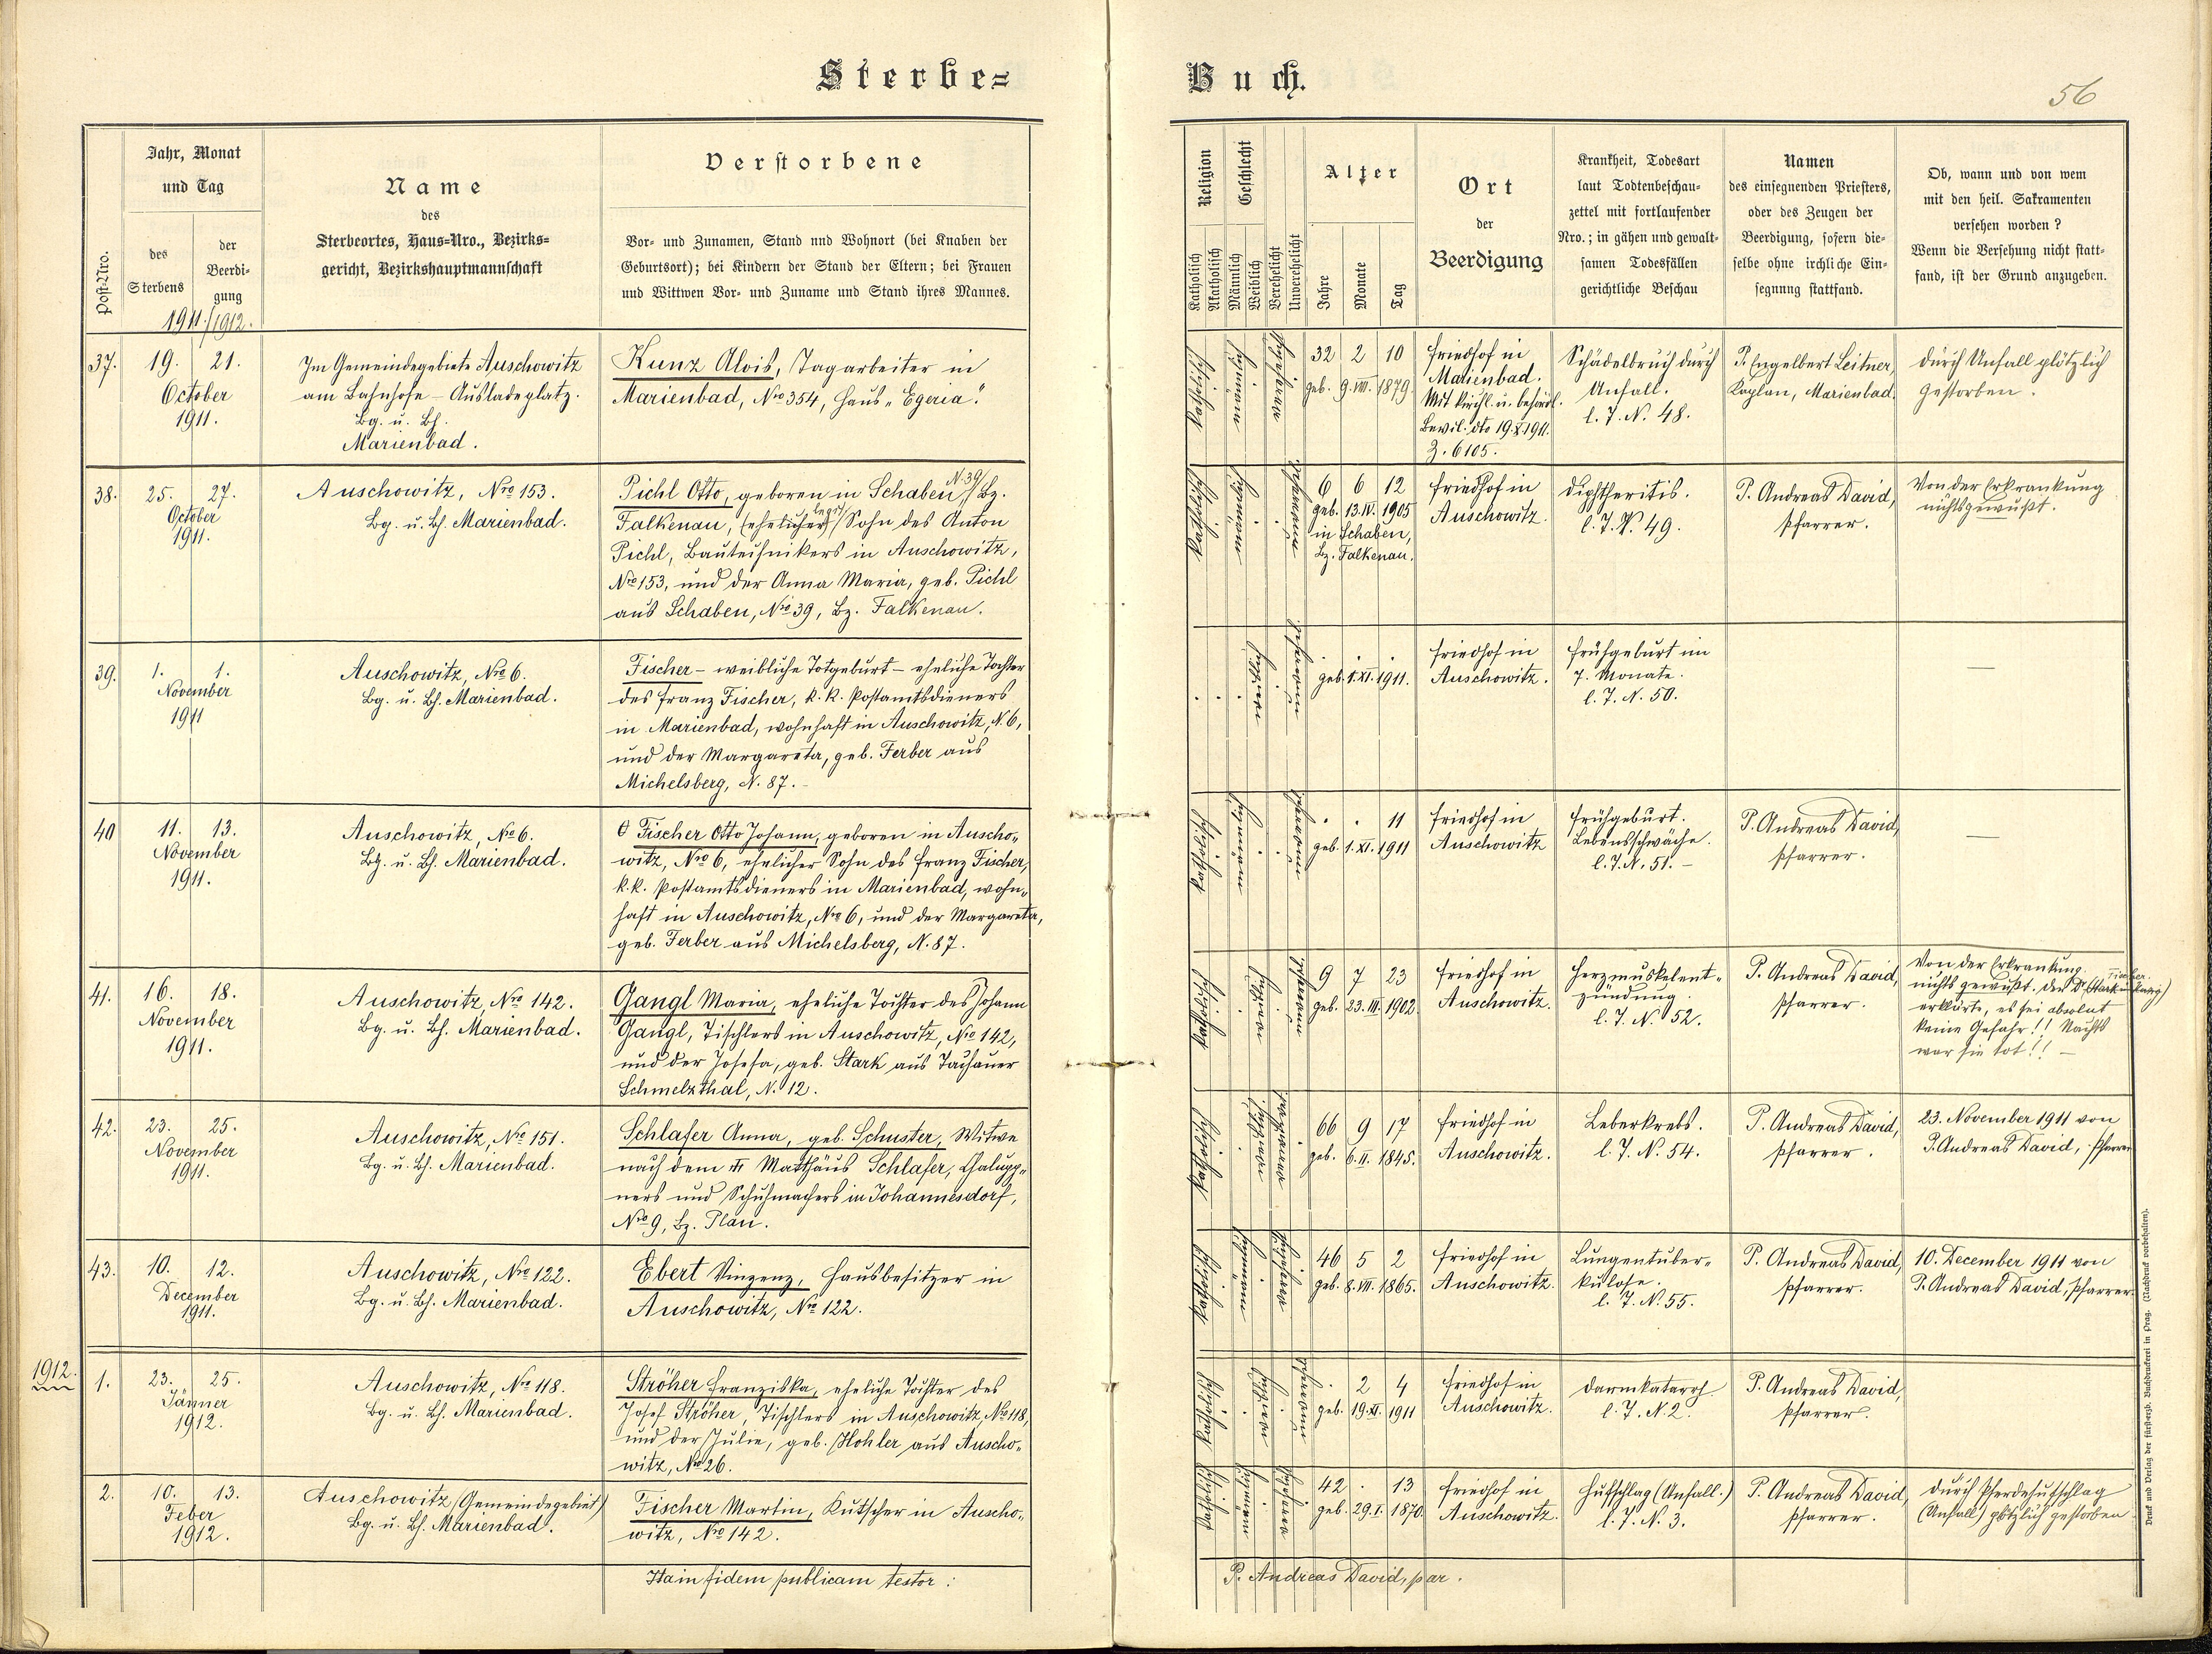 Sterbe=
Buch.
56
Post-Nro.
Jahr, Monat
und Tag
des
Sterbens
der
Beerdi-
gung
1911./1912.
Name
des
Sterbeortes, Haus=Nro., Bezirks=
gericht, Bezirkshauptmannschaft
Verstorbene
Vor- und Zunamen, Stand und Wohnort (bei Knaben der
Geburtsort); bei Kindern der Stand der Eltern; bei Frauen
und Wittwen Vor- und Zuname und Stand ihres Mannes.
Religion
Katholisch
Akatholisch
Geschlecht
Männlich
Weiblich
Verehelicht
Unverehelicht
Alter
Jahre
Monate
Tag
Ort
der
Beerdigung
Krankheit, Todesart
laut Todtenbeschau-
zettel mit fortlaufender
Nro.; in gähen und gewalt-
samen Todesfällen
gerichtliche Beschau
Namen
des einsegnenden Priesters,
oder des Zeugen der
Beerdigung, sofern die-
selbe ohne irchliche Ein-
segnung stattfand.
Ob, wann und von wem
mit den heil. Sakramenten
versehen worden?
Wenn die Versehung nicht statt-
fand, ist der Grund anzugeben.
37. 19. 21.
October
1911.
Im Gemeindegebiete Auschowitz
am Bahnhofe - Ausladeplatz.
Bg. u. Bh.
Marienbad.
Kunz Alois, Tagarbeiter in
Marienbad, Nro 354, Haus "Egeria".
katholisch
männl.
verehel.
32 2 10
geb. 9. VIII. 1879.
Friedhof in
Marienbad.
Mit kirchl. u. behördl.
Bewil. dto 19.X.1911.
Z. 6105.
Schädelbruch durch
Unfall.
l. T. N. 48.
P. Engelbert Leitner,
Kaplan, Marienbad.
durch Unfall plötzlich
gestorben.
38. 25. 27.
October
1911.
Auschowitz, Nro 153.
Bg. u. Bh. Marienbad.
Pichl Otto, geboren in Schaben N. 39/ Bz.
Falkenau, (ehelicher) Sohn des Anton
Pichl, Bautechnikers in Auschowitz,
Nro 153, und der Anna Maria, geb. Pichl
aus Schaben, Nro 39, Bz. Falkenau.
katholisch
6 6 12
geb. 13. IV. 1905
in Schaben,
Bz. Falkenau.
Friedhof in
Auschowitz.
Diphtheritis.
l. T. N. 49.
P. Andreas David,
Pfarrer.
Von der Erkrankung
nichts gewußt.
39. 1. 1.
November
1911
Auschowitz, Nro 6.
Bg. u. Bh. Marienbad.
Fischer - weibliche Totgeburt - eheliche Tochter
des Franz Fischer, k. k. Postamtsdieners
in Marienbad, wohnhaft in Auschowitz, N. 6,
und der Margareta, geb. Ferber aus
Michelsberg, N. 87. -
geb. 1. XI. 1911.
Friedhof in
Auschowitz.
Frühgeburt im
7. Monate.
l. T. N. 50.
—
40 11. 13.
November
1911.
Auschowitz, Nro 6.
Bg. u. Bh. Marienbad.
Fischer Otto Johann, geboren in Auscho-
witz, Nro 6, ehelicher Sohn des Franz Fischer,
k.k. Postamtsdieners in Marienbad, wohn-
haft in Auschowitz, Nro 6, und der Margareta,
geb. Ferber aus Michelsberg, N. 87.
katholisch
. . 11
geb. 1. XI. 1911
Friedhof in
Auschowitz
Frühgeburt.
Lebensschwäche.
l. T. N. 51. -
P. Andreas David,
Pfarrer.
—
41. 16. 18.
November
1911.
Auschowitz, Nro 142.
Bg. u. Bh. Marienbad.
Gangl Maria, eheliche Tochter des Johann
Gangl, Tischlers in Auschowitz, Nro 142,
und der Josefa, geb. Stark aus Tachauer
Schmelzthal, N. 12.
katholisch
9 7 23
geb. 23. III. 1902.
Friedhof in
Auschowitz.
Herzmuskelent-
zündung.
l. T. N. 52.
P. Andreas David,
Pfarrer.
Von der Erkrankung
nichts gewußt. Der Dr.
erklärte, es sei absolut
keine Gefahr!! Nachts
war sie tot!! -
42. 23. 25.
November
1911.
Auschowitz, Nro 151.
Bg. u. Bh. Marienbad.
Schlafer Anna, geb. Schuster, Witwe
nach dem Matthäus Schlafer, Chalupp-
ners und Schuhmachers in Johannesdorf,
Nro 9, Bz. Plan.
katholisch
66 9 17
geb. 6. II. 1845.
Friedhof in
Auschowitz.
Leberkrebs.
l. T. N. 54.
P. Andreas David,
Pfarrer.
23. November 1911 von
P. Andreas David, Pfarrer
43. 10. 12.
December
1911.
Auschowitz, Nro 122.
Bg. u. Bh. Marienbad.
Ebert Vinzenz, Hausbesitzer in
Auschowitz, Nro 122.
katholisch
46 5 2
geb. 8. VII. 1865.
Friedhof in
Auschowitz.
Lungentuber-
kulose.
l. T. N. 55.
P. Andreas David,
Pfarrer.
10. December 1911 von
P. Andreas David, Pfarrer.
1912.
1. 23. 25.
Jänner
1912.
Auschowitz, Nro 118.
Bg. u. Bh. Marienbad.
Ströher Franziska, eheliche Tochter des
Josef Ströher, Tischlers in Auschowitz, Nro 118,
und der Julie, geb. Hohler aus Auscho-
witz, Nro 26.
katholisch
. 2 4
geb. 19. XI. 1911
Friedhof in
Auschowitz.
Darmkatarrh
l. T. N. 2.
P. Andreas David,
Pfarrer.
2. 10. 13.
Feber
1912.
Auschowitz (Gemeindegebiet)
Bg. u. Bh. Marienbad.
Fischer Martin, Kutscher in Auscho-
witz, Nro 142.
katholisch
42 . 13
geb. 29. I. 1870.
Friedhof in
Auschowitz.
Hufschlag (Unfall.)
l. T. N. 3.
P. Andreas David,
Pfarrer.
durch Pferdehufschlag
(Unfall) plötzlich gestorben
Ita in fidem publicam testor:
P. Andreas David, par.
Druck und Verlag der fürsterzb. Buchdruckerei in Prag. (Nachdruck vorbehalten).